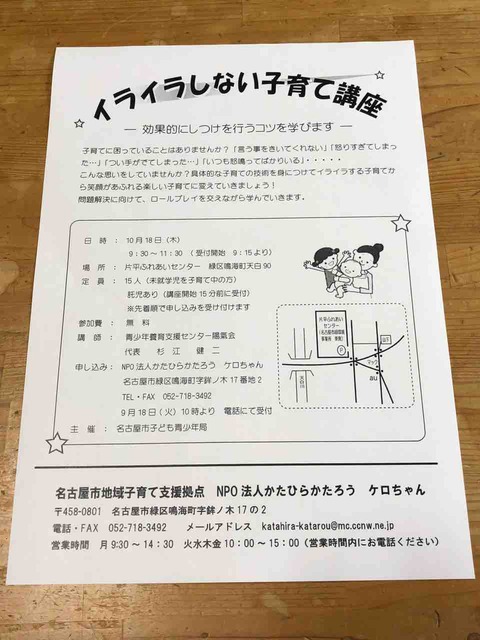 イライラしない子育て講座
― 効果的にしつけを行うコツを学びます ―
子育てに困っていることはありませんか？「言う事をきいてくれない」「怒りすぎてしまっ
た…」「つい手がでてしまった…」「いつも怒鳴ってばかりいる」・・・・・
こんな思いをしていませんか？具体的な子育ての技術を身につけてイライラする子育てか
ら笑顔があふれる楽しい子育てに変えていきましょう！
問題解決に向けて、ロールプレイを交えながら学んでいきます。
日 時 ： 10月18日（木）
9：30～11：30 （受付開始 9：15より）
場 所 ： 片平ふれあいセンター 緑区鳴海町天白90
定 員 ： 15人（未就学児を子育て中の方）
託児あり（講座開始15分前に受付）
※先着順で申し込みを受け付けます
参加費 ： 無 料
講 師 ： 青少年養育支援センター陽氣会
代表 杉 江 健 二
申し込み： NPO法人かたひらかたろう ケロちゃん
名古屋市緑区鳴海町字鉾ノ木17番地2
TEL・FAX 052-718-3492
9月18日（火）10時より 電話にて受付
主 催 ： 名古屋市子ども青少年局
片平ふれあい
センター
P
マック
au
名古屋市地域子育て支援拠点 NPO法人かたひらかたろう ケロちゃん
〒458-0801 名古屋市緑区鳴海町字鉾ノ木17の2
電話・FAX 052-718-3492 メールアドレス katahira-katarou@mc.ccnw.ne.jp
営業時間 月9:30～14:30 火水木金10:00～15:00（営業時間内にお電話ください）